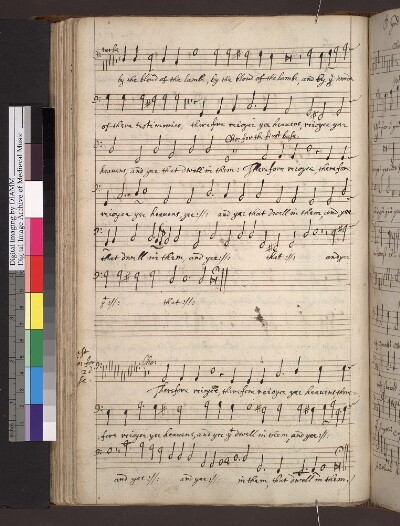 worke
by the blood of the lambe, by the blood of the lambe, and by yᵉ worde
of there testimonies, therefore reioyce yee heavens, reioyce yee
Cho: for the first base
heavens, and yee that dwell in them: Therefore reioyce, therefore
reioyce yee heavens, yee :/: and yee that dwell in them, and yee
that dwell in them, and yee :/: that :/: and yee
yᵗ :/: that :/:
Cho:
Therefore reioyce, therefore reioyce yee heavens there-
fore reioyce yee heavens, and yee yᵗ dwell in them, and yee :/:
and yee :/: and yee :/: in them, that dwell in them,
Digital Imaging by DIAMM
Digital Image Archive of Medieval Music